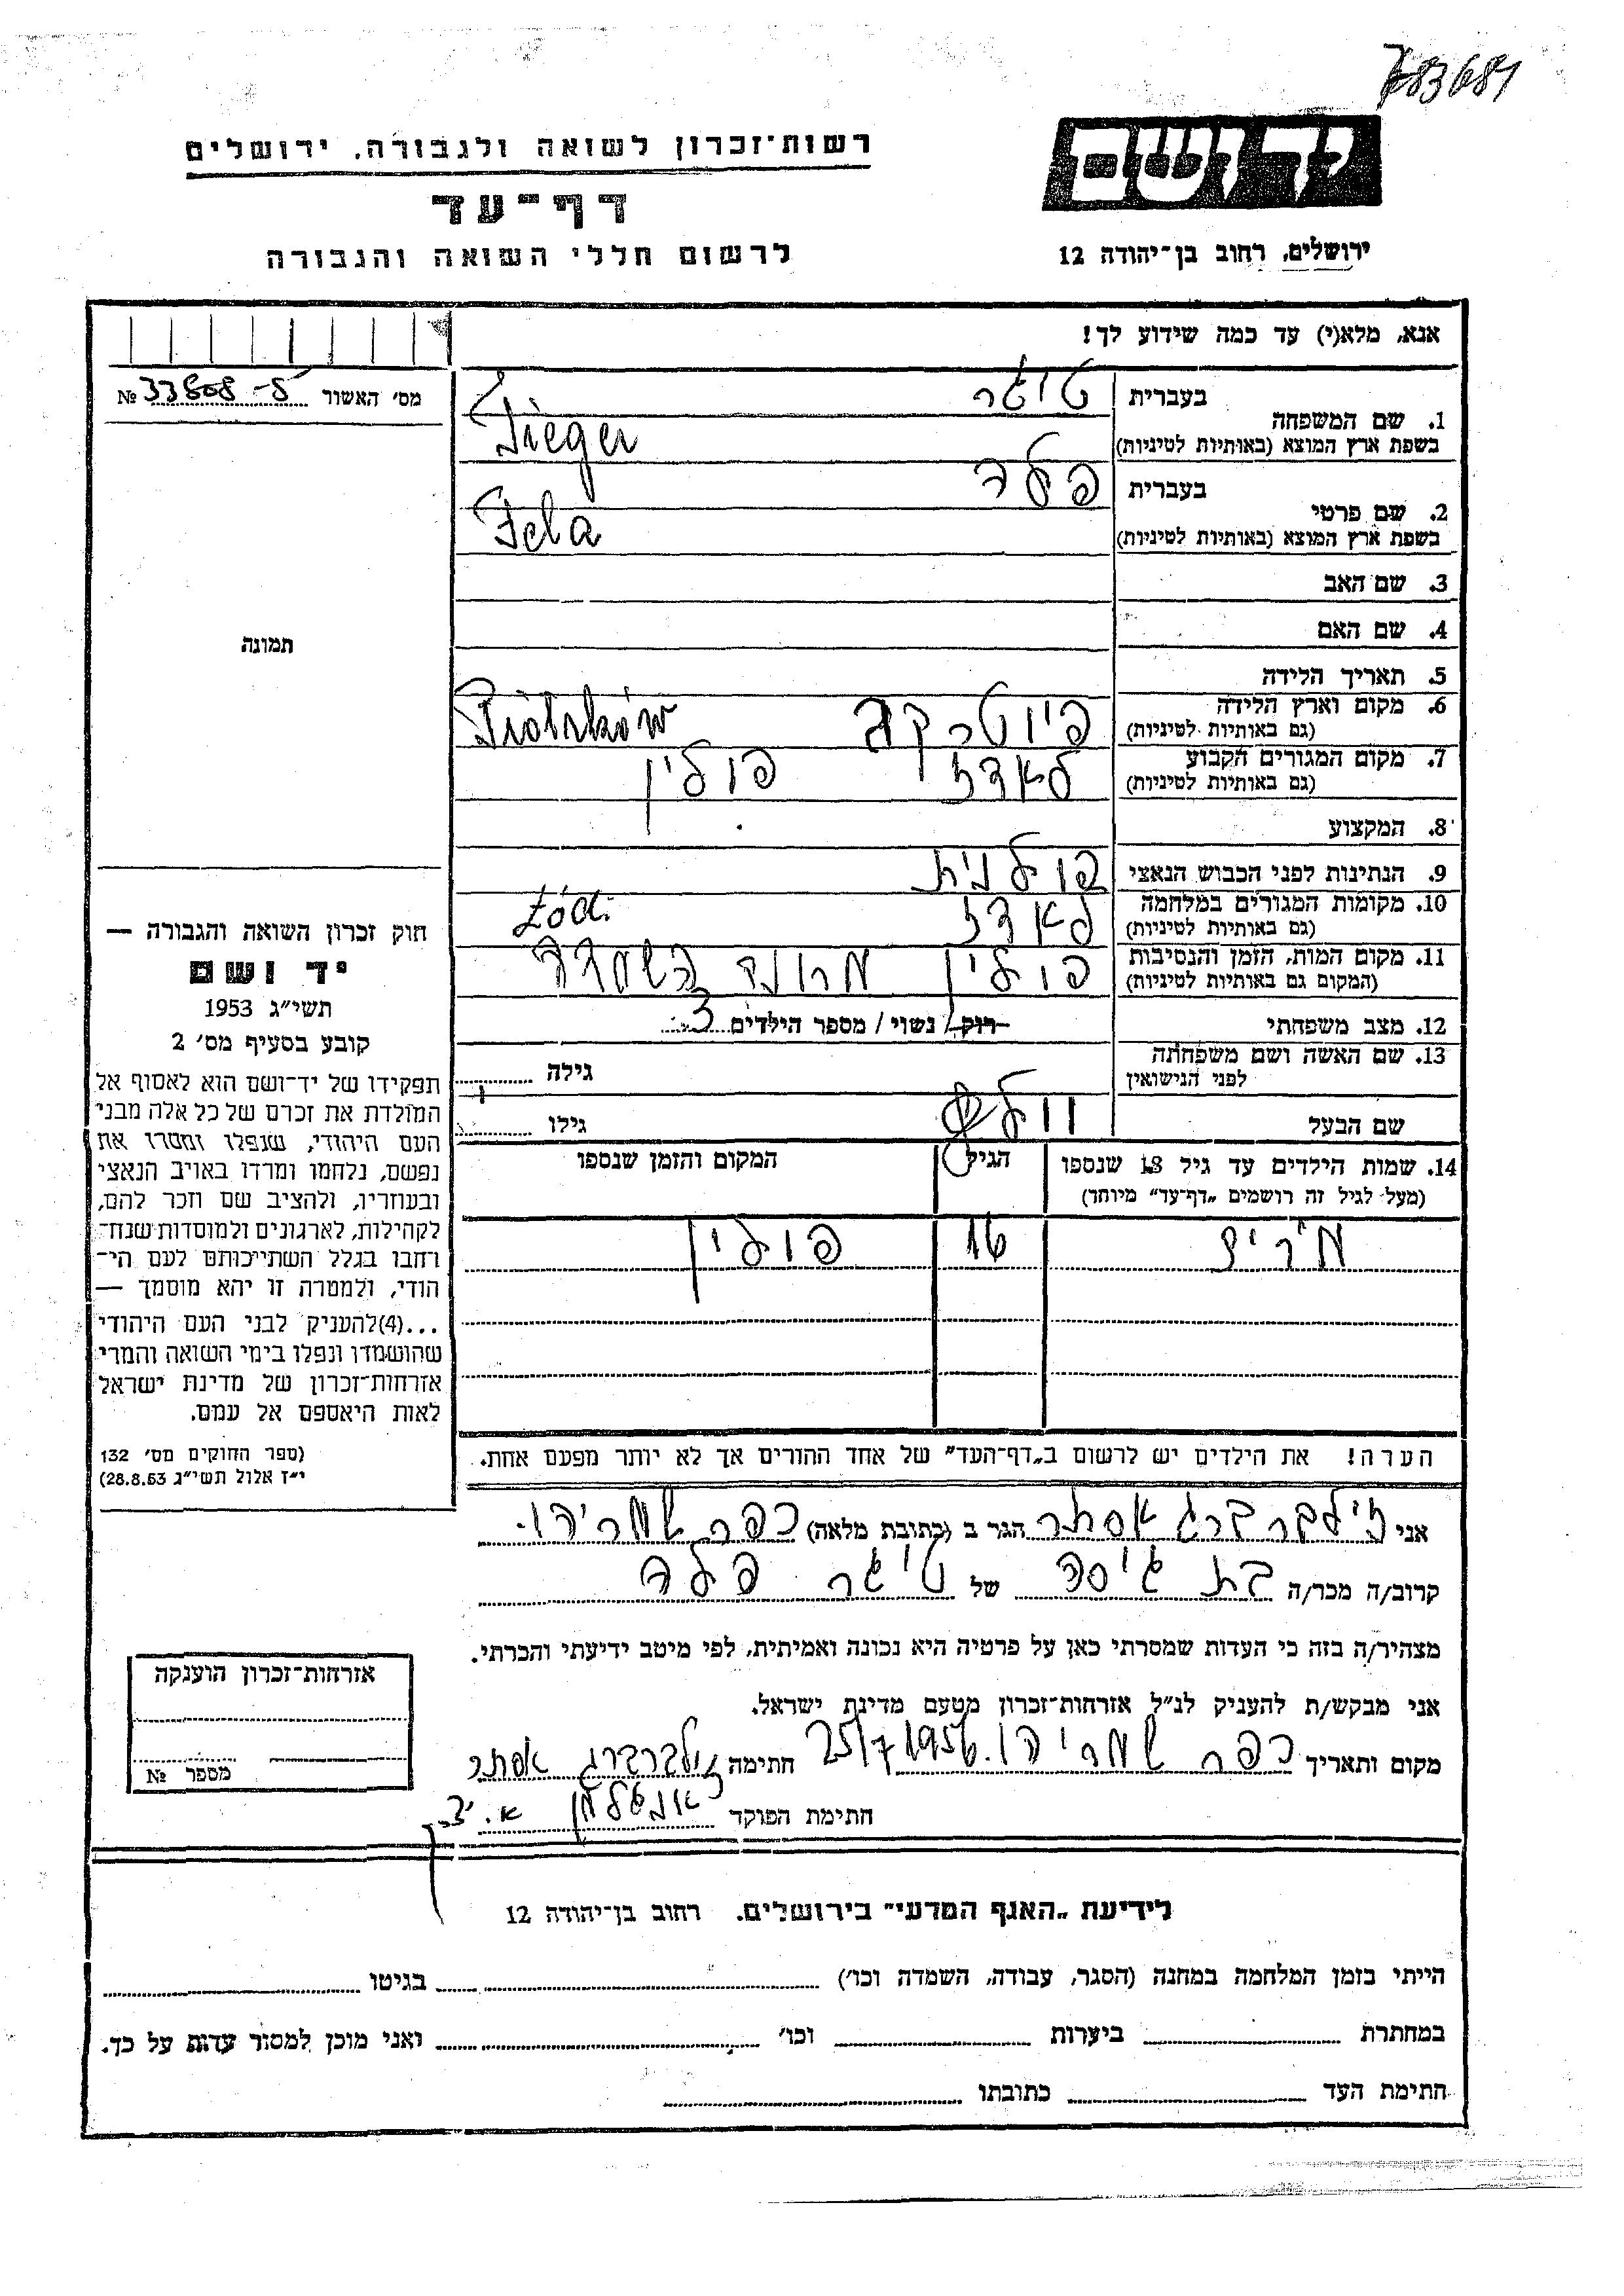 783681
יד ושם
רשות־זכרון לשואה ולגבורה, ירושלים
דף־עד
לרשום חללי השואה והגבורה
ירושלים, רחוב בן־יהודה 12
אנא, מלא(י) עד כמה שידוע לך!
מס׳ האשור № 33808-5
1. שם המשפחה בעברית טיגר
בשפת ארץ המוצא (באותיות לטיניות) Tieger
2. שם פרטי בעברית פלה
בשפת ארץ המוצא (באותיות לטיניות) Fela
3. שם האב
4. שם האם
תמונה
5. תאריך הלידה
6. מקום וארץ הלידה
(גם באותיות לטיניות) Piotrków
7. מקום המגורים הקבוע
(גם באותיות לטיניות) לאדז פולין
8. המקצוע
9. הנתינות לפני הכבוש הנאצי פולנית
10. מקומות המגורים במלחמה
(גם באותיות לטיניות) לאדז Łódź
11. מקום המות, הזמן והנסיבות
(המקום גם באותיות לטיניות) פולין מחנה השמדה
12. מצב משפחתי רוק/ נשוי / מספר הילדים 3
13. שם האשה ושם משפחתה
לפני הנישואין גילה
שם הבעל גילו
14. שמות הילדים עד גיל 18 שנספו הגיל המקום והזמן שנספו
(מעל לגיל זה רושמים „דף־עד” מיוחד)
16 פולין
הערה! את הילדים יש לרשום ב„דף־העד” של אחד ההורים אך לא יותר מפעם אחת.
חוק זכרון השואה והגבורה —
יד ושם
תשי״ג 1953
קובע בסעיף מס׳ 2
תפקידו של יד־ושם הוא לאסוף אל
המולדת את זכרם של כל אלה מבני
העם היהודי, שנפלו ומסרו את
נפשם, נלחמו ומרדו באויב הנאצי
ובעוזריו, ולהציב שם וזכר להם,
לקהילות, לארגונים ולמוסדות שנח־
רחבו בגלל השתייכותם לעם הי־
הודי, ולמטרה זו יהא מוסמך —
...(4)להעניק לבני העם היהודי
שהושמדו ונפלו בימי השואה והמרי
אזרחות־זכרון של מדינת ישראל
לאות היאספם אל עמם.
(ספר החוקים מס׳ 132
י״ז אלול תשי״ג 28.8.53)
אני זילברברג אסתר הגר ב (כתובת מלאה) כפר שמריהו.
קרוב/ה מכר/ה בת גיסה של טיגר פלה
מצהיר/ה בזה כי העדות שמסרתי כאן על פרטיה היא נכונה ואמיתית, לפי מיטב ידיעתי והכרתי.
אני מבקש/ת להעניק לנ״ל אזרחות־זכרון מטעם מדינת ישראל.
מקום ותאריך כפר שמריהו. 25/7 1956 חתימה זילברברג אסתר
חתימת הפוקד
אזרחות־זכרון הוענקה
מספר №
לידיעת „האגף המדעי” בירושלים. רחוב בן־יהודה 12
הייתי בזמן המלחמה במחנה (הסגר, עבודה, השמדה וכו׳) בגיטו
במחתרת ביערות וכו׳ ואני מוכן למסור עדות על כך.
חתימת העד כתובתו